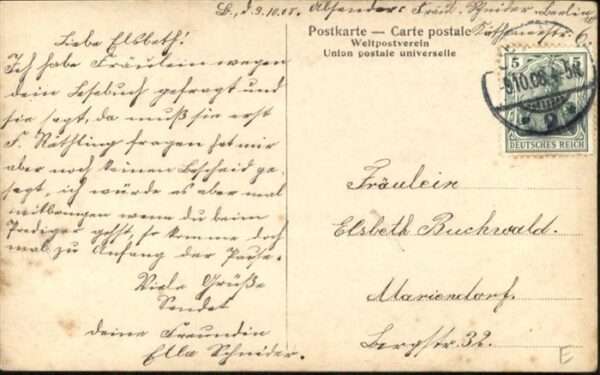 B., d. 9.10.08. Absender: Fräul. Schneider - Berlin
6.
Postkarte — Carte postale
Weltpostverein
Union postale universelle
5 5
9.10.08.
DEUTSCHES REICH
Liebe Elsbeth!
Ich habe Fräulein wegen
dein Lesebuch gefragt und
sie sagt, da muß sie erst
F. Näthling fragen hat mir
aber noch keinen Bescheid ge-
sagt, ich würde es aber mal
mitbringen wenn du beim
Prediger gehst, so komme doch
mal zu Anfang der Pause.
Viele Grüße
Sendet
deine Freundin
Ella Schnider.
Fräulein
Elsbeth Buchwald.
Mariendorf.
Bergstr. 32.
E